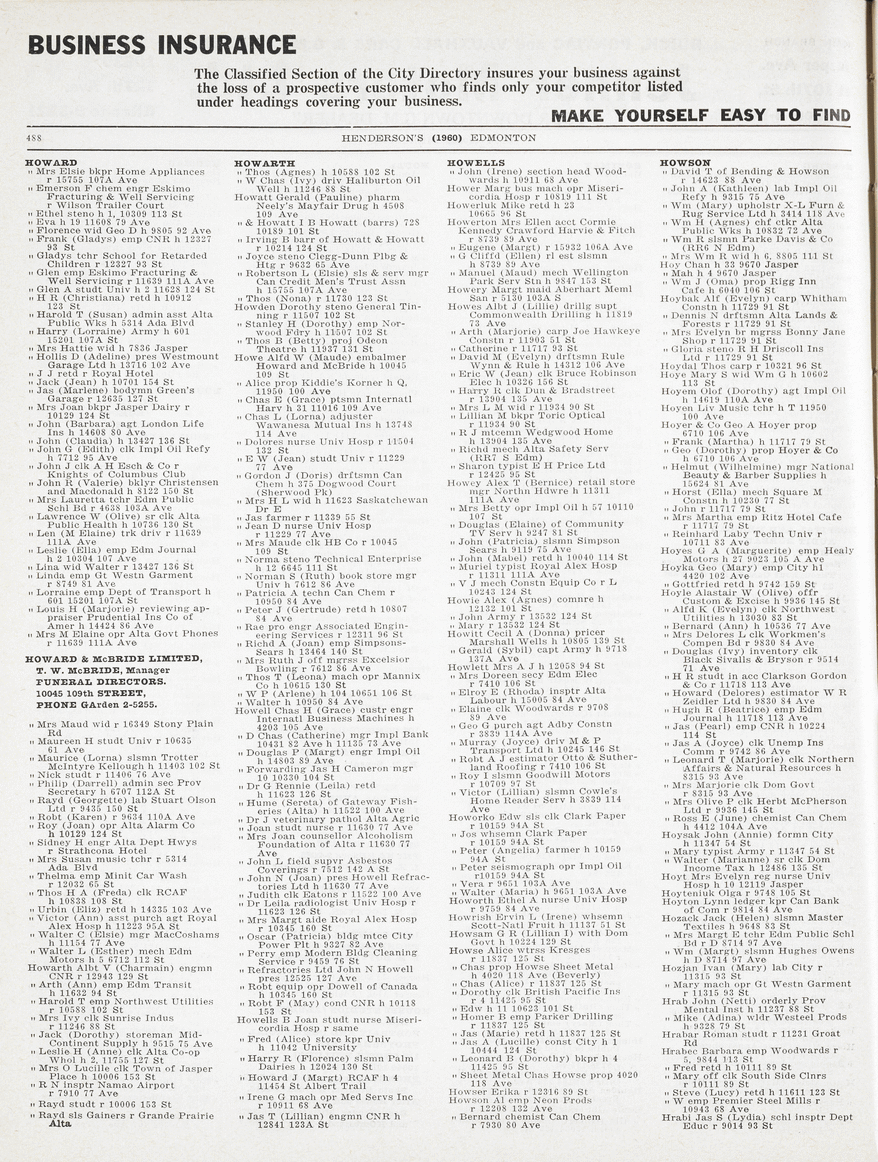 BUSINESS INSURANCE
The Classified Section of the City Directory insures your business against
the loss of a prospective customer who finds only your competitor listed
under headings covering your business.
MAKE YOURSELF EASY TO FIND
488
HENDERSON'S (1960) EDMONTON
HOWARD
" Mrs Elsie bkpr Home Appliances
r 15755 107A Ave
" Emerson F chem engr Eskimo
Fracturing & Well Servicing
r Wilson Trailer Court
" Ethel steno h 1, 10309 113 St
" Eva h 19 11608 79 Ave
" Florence wid Geo D h 9805 92 Ave
" Frank (Gladys) emp CNR h 12327
93 St
" Gladys tchr School for Retarded
Children r 12327 93 St
" Glen emp Eskimo Fracturing &
Well Servicing r 11639 111A Ave
" Glen A studt Univ h 2 11628 124 St
" H R (Christiana) retd h 10912
123 St
" Harold T (Susan) admin asst Alta
Public Wks h 5314 Ada Blvd
" Harry (Lorraine) Army h 601
15201 107A St
" Mrs Hattie wid h 7836 Jasper
" Hollis D (Adeline) pres Westmount
Garage Ltd h 13716 102 Ave
" J J retd r Royal Hotel
" Jack (Jean) h 10701 154 St
" Jas (Marlene) bodymn Green's
Garage r 12635 127 St
" Mrs Joan bkpr Jasper Dairy r
10129 124 St
" John (Barbara) agt London Life
Ins h 14608 80 Ave
" John (Claudia) h 13427 136 St
" John G (Edith) clk Impl Oil Refy
h 7712 95 Ave
" John J clk A H Esch & Co r
Knights of Columbus Club
" John R (Valerie) bklyr Christensen
and Macdonald h 8122 150 St
" Mrs Lauretta tchr Edm Public
Schl Bd r 4638 103A Ave
" Lawrence W (Olive) sr clk Alta
Public Health h 10736 130 St
" Len (M Elaine) trk driv r 11639
111A Ave
" Leslie (Ella) emp Edm Journal
h 2 10304 107 Ave
" Lina wid Walter r 13427 136 St
" Linda emp Gt Westn Garment
r 8749 81 Ave
" Lorraine emp Dept of Transport h
601 15201 107A St
" Louis H (Marjorie) reviewing ap-
praiser Prudential Ins Co of
Amer h 14424 86 Ave
" Mrs M Elaine opr Alta Govt Phones
r 11639 111A Ave
HOWARD & McBRIDE LIMITED,
T. W. McBRIDE, Manager
FUNERAL DIRECTORS.
10045 109th STREET,
PHONE GArden 2-5255.
" Mrs Maud wid r 16349 Stony Plain
Rd
" Maureen H studt Univ r 10635
61 Ave
" Maurice (Lorna) slsmn Trotter
McIntyre Kellough h 11403 102 St
" Nick studt r 11406 76 Ave
" Philip (Darrell) admin sec Prov
Secretary h 6707 112A St
" Rayd (Georgette) lab Stuart Olson
Ltd r 9435 150 St
" Robt (Karen) r 9634 110A Ave
" Roy (Joan) opr Alta Alarm Co
h 10129 124 St
" Sidney H engr Alta Dept Hwys
r Strathcona Hotel
" Mrs Susan music tchr r 5314
Ada Blvd
" Thelma emp Minit Car Wash
r 12032 65 St
" Thos H A (Freda) clk RCAF
h 10838 108 St
" Urbin (Eliz) retd h 14335 103 Ave
" Victor (Ann) asst purch agt Royal
Alex Hosp h 11223 95A St
" Walter C (Elsie) mgr MacCoshams
h 11154 77 Ave
" Walter L (Esther) mech Edm
Motors h 5 6712 112 St
Howarth Albt V (Charmain) engmn
CNR r 12943 129 St
" Arth (Ann) emp Edm Transit
h 11632 94 St
" Harold T emp Northwest Utilities
r 10588 102 St
" Mrs Ivy clk Sunrise Indus
r 11246 88 St
" Jack (Dorothy) storeman Mid-
Continent Supply h 9515 75 Ave
" Leslie H (Anne) clk Alta Co-op
Whol h 2, 11755 127 St
" Mrs O Lucille clk Town of Jasper
Place h 10006 153 St
" R N insptr Namao Airport
r 7910 77 Ave
" Rayd studt r 10006 153 St
" Rayd sls Gainers r Grande Prairie
Alta
HOWARTH
" Thos (Agnes) h 10588 102 St
" W Chas (Ivy) driv Haliburton Oil
Well h 11246 88 St
Howatt Gerald (Pauline) pharm
Neely's Mayfair Drug h 4508
109 Ave
" & Howatt I B Howatt (barrs) 728
10189 101 St
" Irving B barr of Howatt & Howatt
r 10214 124 St
" Joyce steno Clegg-Dunn Plbg &
Htg r 9632 65 Ave
" Robertson L (Elsie) sls & serv mgr
Can Credit Men's Trust Assn
h 15755 107A Ave
" Thos (Nona) r 11730 123 St
Howden Dorothy steno General Tin-
ning r 11507 102 St
" Stanley H (Dorothy) emp Nor-
wood Fdry h 11507 102 St
" Thos B (Betty) proj Odeon
Theatre h 11937 131 St
Howe Alfd W (Maude) embalmer
Howard and McBride h 10045
109 St
" Alice prop Kiddie's Korner h Q,
11950 100 Ave
" Chas E (Grace) ptsmn Internatl
Harv h 31 11016 109 Ave
" Chas L (Lorna) adjuster
Wawanesa Mutual Ins h 13748
114 Ave
" Dolores nurse Univ Hosp r 11504
132 St
" E W (Jean) studt Univ r 11229
77 Ave
" Gordon J (Doris) drftsmn Can
Chem h 375 Dogwood Court
(Sherwood Pk)
" Mrs H L wid h 11623 Saskatchewan
Dr E
" Jas farmer r 11339 55 St
" Jean D nurse Univ Hosp
r 11229 77 Ave
" Mrs Maude clk HB Co r 10045
109 St
" Norma steno Technical Enterprise
h 12 6645 111 St
" Norman S (Ruth) book store mgr
Univ h 7612 86 Ave
" Patricia A techn Can Chem r
10950 84 Ave
" Peter J (Gertrude) retd h 10807
84 Ave
" Rae pro engr Associated Engin-
eering Services r 12311 96 St
" Richd A (Joan) emp Simpsons-
Sears h 13464 140 St
" Mrs Ruth J off mgrss Excelsior
Bowling r 7612 86 Ave
" Thos T (Leona) mach opr Mannix
Co h 10615 130 St
" W P (Arlene) h 104 10651 106 St
" Walter h 10950 84 Ave
Howell Chas H (Grace) custr engr
Internatl Business Machines h
4203 105 Ave
" D Chas (Catherine) mgr Impl Bank
10431 82 Ave h 11135 73 Ave
" Douglas P (Margt) engr Impl Oil
h 14803 89 Ave
" Forwarding Jas H Cameron mgr
10 10330 104 St
" Dr G Rennie (Leila) retd
h 11623 126 St
" Hume (Sereta) of Gateway Fish-
eries (Alta) h 11522 100 Ave
" Dr J veterinary pathol Alta Agric
" Joan studt nurse r 11630 77 Ave
" Mrs Joan counsellor Alcoholism
Foundation of Alta r 11630 77
Ave
" John L field supvr Asbestos
Coverings r 7512 142 A St
" John N (Joan) pres Howell Refrac-
tories Ltd h 11630 77 Ave
" Judith clk Eatons r 11522 100 Ave
" Dr Leila radiologist Univ Hosp r
11623 126 St
" Mrs Margt aide Royal Alex Hosp
r 10345 160 St
" Oscar (Patricia) bldg mtce City
Power Plt h 9327 82 Ave
" Perry emp Modern Bldg Cleaning
Service r 9459 76 St
" Refractories Ltd John N Howell
pres 12525 127 Ave
" Robt equip opr Dowell of Canada
h 10345 160 St
" Robt F (May) cond CNR h 10118
153 St
Howells B Joan studt nurse Miseri-
cordia Hosp r same
" Fred (Alice) store kpr Univ
h 11042 University
" Harry R (Florence) slsmn Palm
Dairies h 12024 130 St
" Howard J (Margt) RCAF h 4
11454 St Albert Trail
" Irene G mach opr Med Servs Inc
r 10911 68 Ave
" Jas T (Lillian) engmn CNR h
12841 123A St
HOWELLS
" John (Irene) section head Wood-
wards h 10911 68 Ave
Hower Marg bus mach opr Miseri-
cordia Hosp r 10819 111 St
Howerluk Mike retd h 23
10665 96 St
Howerton Mrs Ellen acct Cormie
Kennedy Crawford Harvie & Fitch
r 8739 89 Ave
" Eugene (Margt) r 15932 106A Ave
" G Cliffd (Ellen) rl est slsmn
h 8739 89 Ave
" Manuel (Maud) mech Wellington
Park Serv Stn h 9847 153 St
Howery Margt maid Aberhart Meml
San r 5130 103A S
Howes Albt J (Lillie) drillg supt
Commonwealth Drilling h 11819
73 Ave
" Arth (Marjorie) carp Joe Hawkeye
Constn r 11903 51 St
" Catherine r 11717 93 St
" David M (Evelyn) drftsmn Rule
Wynn & Rule h 14312 106 Ave
" Eric W (Jean) clk Bruce Robinson
Elec h 10326 156 St
" Harry R clk Dun & Bradstreet
r 13904 135 Ave
" Mrs L M wid r 11934 90 St
" Lillian M bkpr Toric Optical
r 11934 90 St
" R J mtcemn Wedgwood Home
h 13904 135 Ave
" Richd mech Alta Safety Serv
(RR7 S Edm)
" Sharon typist E H Price Ltd
r 12425 95 St
Howey Alex T (Bernice) retail store
mgr Northn Hdwre h 11311
111A Ave
" Mrs Betty opr Impl Oil h 57 10110
107 St
" Douglas (Elaine) of Community
TV Serv h 9247 81 St
" John (Patricia) slsmn Simpson
Sears h 9119 75 Ave
" John (Mabel) retd h 10040 114 St
" Muriel typist Royal Alex Hosp
r 11311 111A Ave
" V J mech Constn Equip Co r L
10243 124 St
Howie Alex (Agnes) comnre h
12132 101 St
" John Army r 13532 124 St
" Mary r 13532 124 St
Howitt Cecil A (Donna) pricer
Marshall Wells h 10805 139 St
" Gerald (Sybil) capt Army h 9718
137A Ave
Howlett Mrs A J h 12058 94 St
" Mrs Doreen secy Edm Elec
r 7410 106 St
" Elroy E (Rhoda) insptr Alta
Labour h 15005 84 Ave
" Elaine clk Woodwards r 9708
89 Ave
" Geo G purch agt Adby Constn
r 3839 114A Ave
" Murray (Joyce) driv M & P
Transport Ltd h 10245 146 St
" Robt A J estimator Otto & Suther-
land Roofing r 7410 106 St
" Roy I slsmn Goodwill Motors
r 10709 97 St
" Victor (Lillian) slsmn Cowle's
Home Reader Serv h 3839 114
Ave
Howorko Edw sls clk Clark Paper
r 10159 94A St
" Jos whsemn Clark Paper
r 10159 94A St
" Peter (Angelia) farmer h 10159
94A St
" Peter seismograph opr Impl Oil
r10159 94A St
" Vera r 9651 103A Ave
" Walter (Maria) h 9651 103A Ave
Howorth Ethel A nurse Univ Hosp
r 9759 84 Ave
Howrish Ervin L (Irene) whsemn
Scott-Natl Fruit h 11137 51 St
Howsam G R (Lillian I) with Dom
Govt h 10224 129 St
Howse Alice wtrss Kresges
r 11837 125 St
" Chas prop Howse Sheet Metal
h 4020 118 Ave (Beverly)
" Chas (Alice) r 11837 125 St
" Dorothy clk British Pacific Ins
r 4 11425 95 St
" Edw h 11 10623 101 St
" Homer B emp Parker Drilling
r 11837 125 St
" Jas (Marie) retd h 11837 125 St
" Jas A (Lucille) const City h 1
10444 124 St
" Leonard B (Dorothy) bkpr h 4
11425 95 St
" Sheet Metal Chas Howse prop 4020
118 Ave
Howser Erika r 12316 89 St
Howson Al emp Neon Prods
r 12208 132 Ave
" Bernard chemist Can Chem
r 7930 80 Ave
HOWSON
" David T of Bending & Howson
r 14623 88 Ave
" John A (Kathleen) lab Impl Oil
Refy h 9315 75 Ave
" Wm (Mary) upholstr X-L Furn &
Rug Service Ltd h 3414 118 Ave
" Wm H (Agnes) chf ctkr Alta
Public Wks h 10832 72 Ave
" Wm R slsmn Parke Davis & Co
(RR6 N Edm)
" Mrs Wm R wid h 6, 8805 111 St
Hoy Chan h 33 9670 Jasper
" Mah h 4 9670 Jasper
" Wm J (Oma) prop Rigg Inn
Cafe h 6040 106 St
Hoybak Alf (Evelyn) carp Whitham
Constn h 11729 91 St
" Dennis N drftsmn Alta Lands &
Forests r 11729 91 St
" Mrs Evelyn br mgrss Bonny Jane
Shop r 11729 91 St
" Gloria steno R H Driscoll Ins
Ltd r 11729 91 St
Hoydal Thos carp r 10321 96 St
Hoye Mary S wid Wm G h 10602
113 St
Hoyem Olof (Dorothy) agt Impl Oil
h 14619 110A Ave
Hoyen Liv Music tchr h T 11950
100 Ave
Hoyer & Co Geo A Hoyer prop
6710 106 Ave
" Frank (Martha) h 11717 79 St
" Geo (Dorothy) prop Hoyer & Co
h 6710 106 Ave
" Helmut (Wilhelmine) mgr National
Beauty & Barber Supplies h
15624 81 Ave
" Horst (Ella) mech Square M
Constn h 10230 77 St
" John r 11717 79 St
" Mrs Martha emp Ritz Hotel Cafe
r 11717 79 St
" Reinhard Laby Techn Univ r
10711 83 Ave
Hoyes G A (Marguerite) emp Healy
Motors h 27 9023 105 A Ave
Hoyka Geo (Mary) emp City h1
4420 102 Ave
" Gottfried retd h 9742 159 St
Hoyle Alastair W (Olive) offr
Custom & Excise h 9936 145 St
" Alfd K (Evelyn) clk Northwest
Utilities h 13030 83 St
" Bernard (Ann) h 10536 77 Ave
" Mrs Delores L clk Workmen's
Compen Bd r 9830 84 Ave
" Douglas (Ivy) inventory clk
Black Sivalls & Bryson r 9514
71 Ave
" H R studt in acc Clarkson Gordon
& Co r 11718 113 Ave
" Howard (Delores) estimator W R
Zeidler Ltd h 9830 84 Ave
" Hugh R (Beatrice) emp Edm
Journal h 11718 113 Ave
" Jas (Pearl) emp CNR h 10224
114 St
" Jas A (Joyce) clk Unemp Ins
Comm r 9742 86 Ave
" Leonard T (Marjorie) clk Northern
Affairs & Natural Resources h
8315 93 Ave
" Mrs Marjorie clk Dom Govt
r 8315 93 Ave
" Mrs Olive P clk Herbt McPherson
Ltd r 9936 145 St
" Ross E (June) chemist Can Chem
h 4412 104A Ave
Hoysak John (Annie) formn City
h 11347 54 St
" Mary typist Army r 11347 54 St
" Walter (Marianne) sr clk Dom
Income Tax h 12486 135 St
Hoyt Mrs Evelyn reg nurse Univ
Hosp h 10 12119 Jasper
Hoyteniuk Olga r 9748 105 St
Hoyton Lynn ledger kpr Can Bank
of Com r 9814 84 Ave
Hozack Jack (Helen) slsmn Master
Textiles h 9648 83 St
" Mrs Margt E tchr Edm Public Schl
Bd r D 8714 97 Ave
" Wm (Margt) slsmn Hughes Owens
h D 8714 97 Ave
Hozjan Ivan (Mary) lab City r
11315 93 St
" Mary mach opr Gt Westn Garment
r 11315 93 St
Hrab John (Netti) orderly Prov
Mental Inst h 11237 88 St
" Mike (Adina) wldr Westeel Prods
h 9328 79 St
Hrabar Roman studt r 11231 Groat
Rd
Hrabec Barbara emp Woodwards r
5, 9844 113 St
" Fred retd h 10111 89 St
" Mary off clk South Side Clnrs
r 10111 89 St
" Steve (Lucy) retd h 11611 123 St
" W emp Premier Steel Mills r
10943 68 Ave
Hrabi Jas S (Lydia) schl insptr Dept
Educ r 9014 93 St